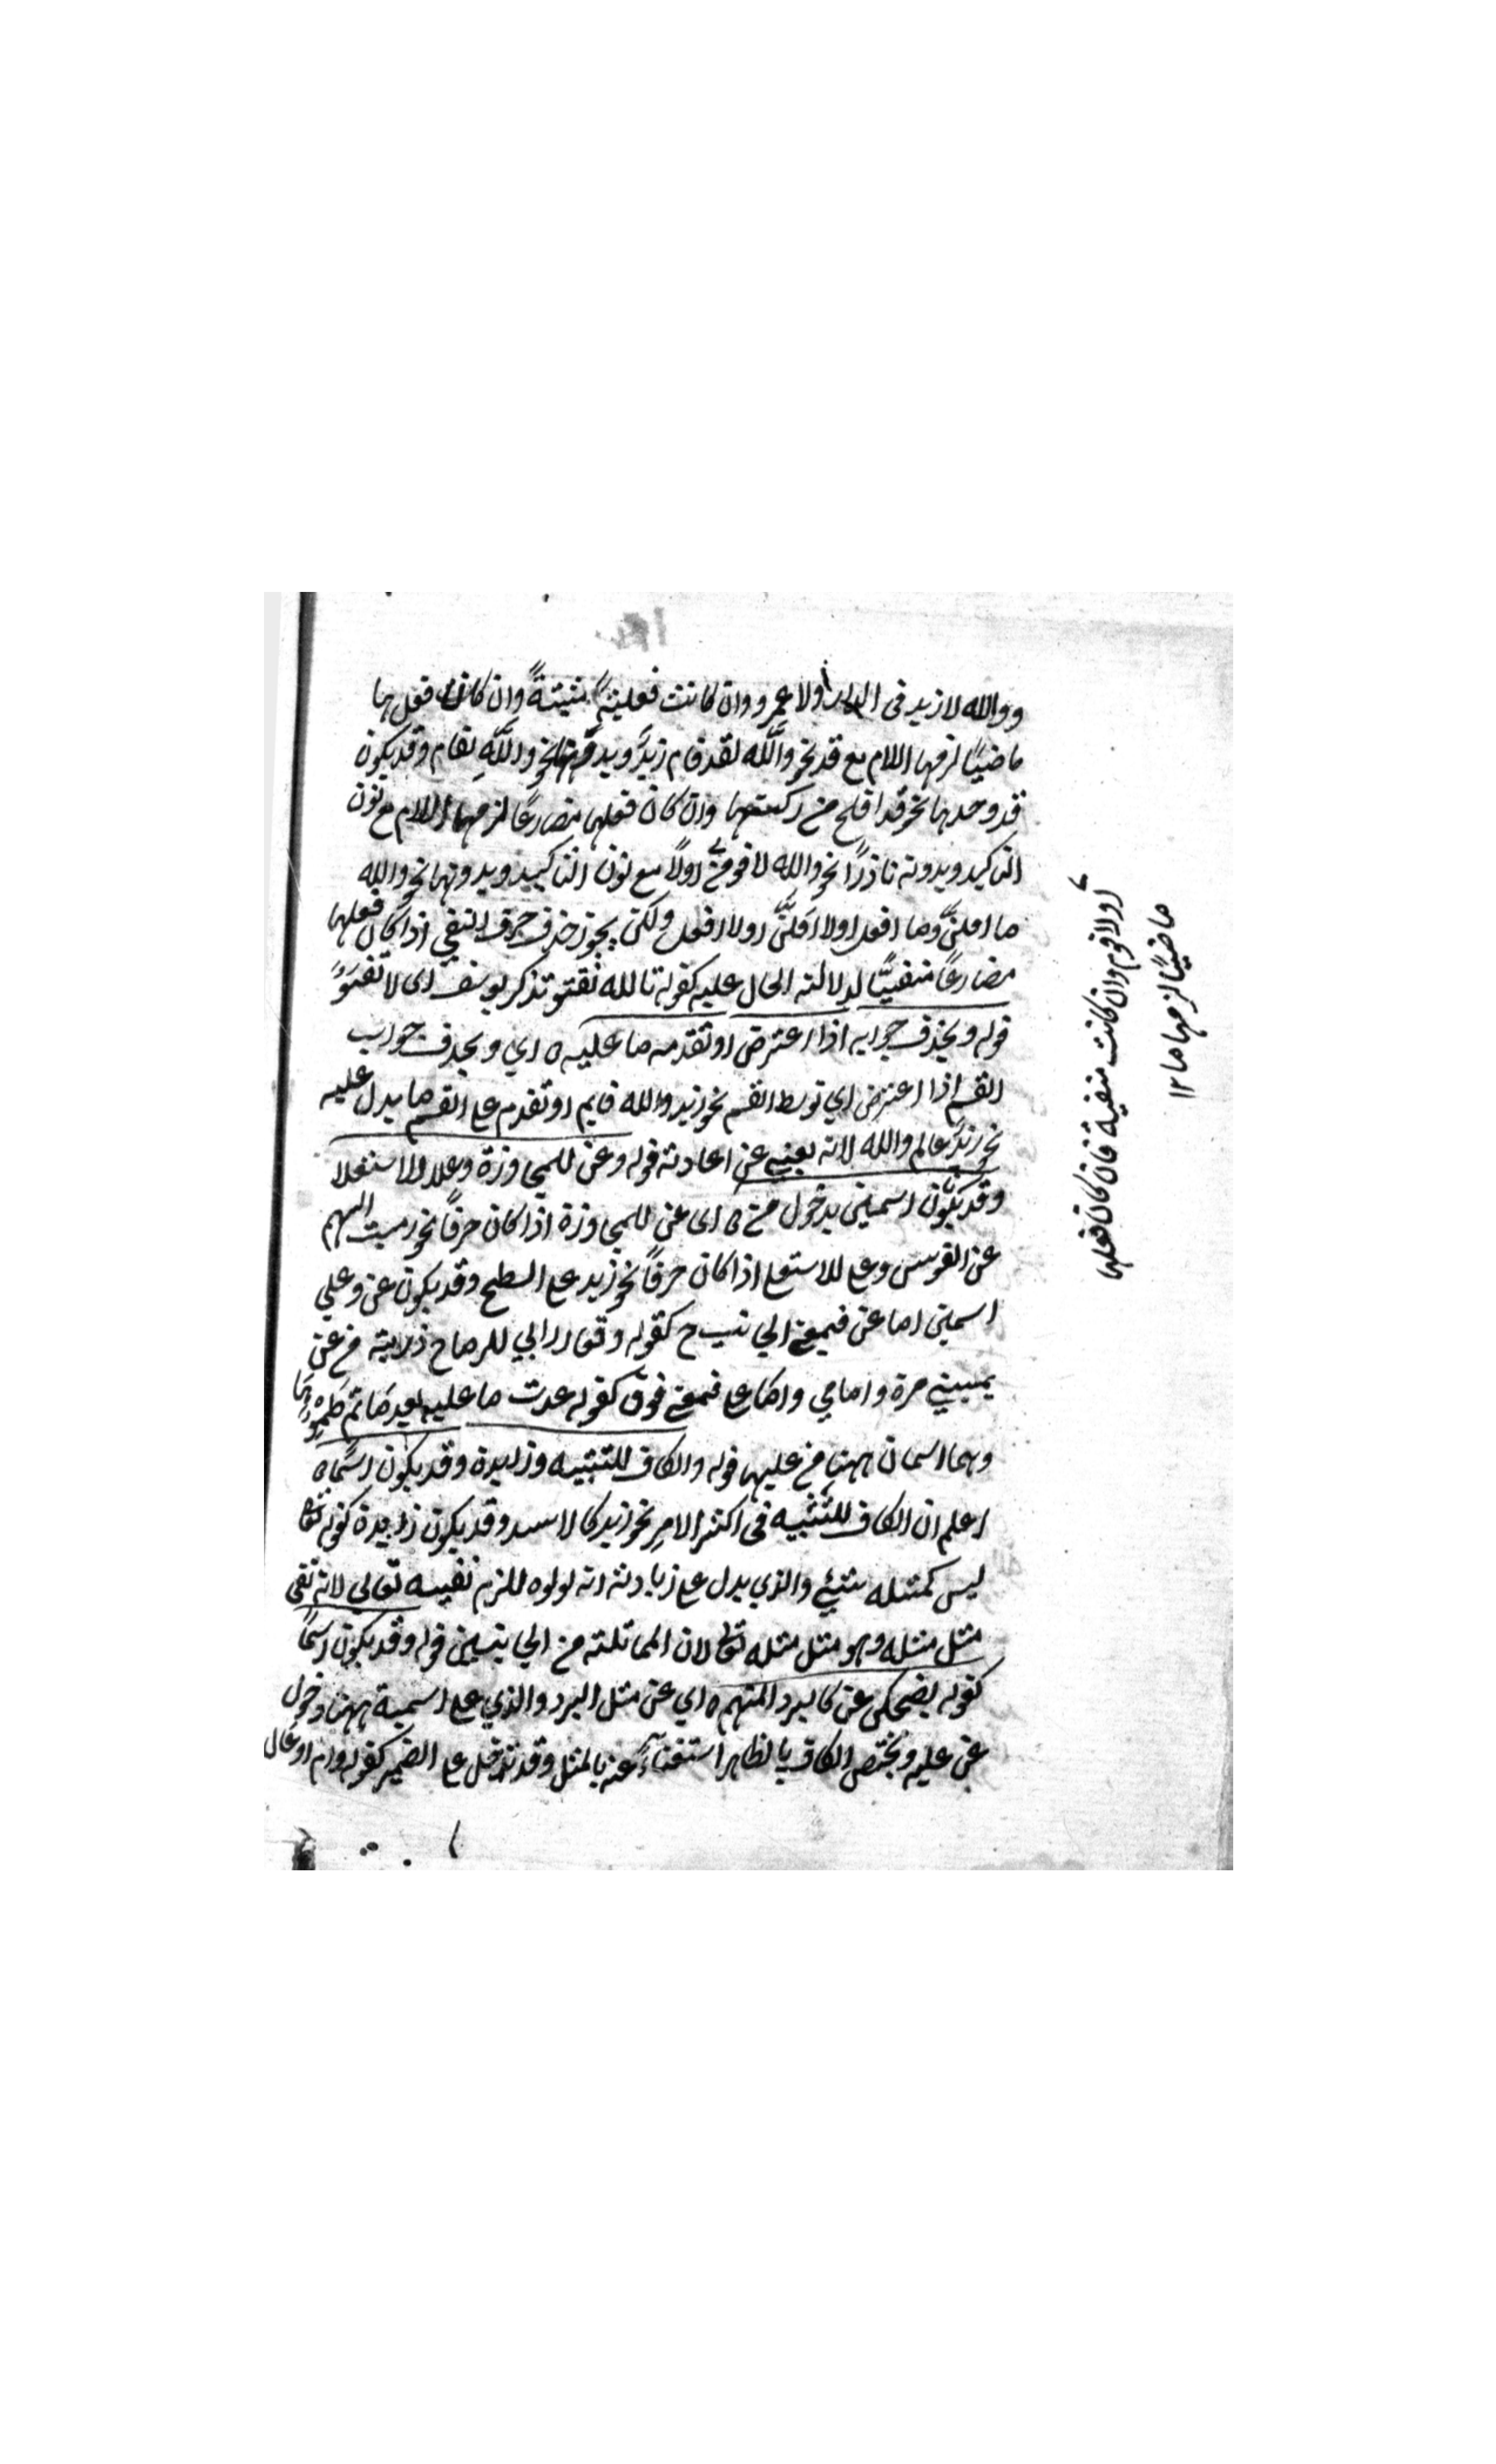 ووالله لا زيد فى الدار ولا عمرو وان كانت فعلية مثبتةً وان كان فعلها
ماضيًا لزمها اللام مع قد نحو واللّه لقد قام زيدٌ وبدونها نحو واللّهِ لقام وقد يكون
قد وحدها نحو قد افلح من زكيها وان كان فعلها مضارعًا لزمها اللام مع نون
التاكيد وبدونه نادرًا نحو والله لاقومنّ اولًا مع نون التاكيد وبدونها نحو والله
ما افعلنّ وما افعل اولا افعلنّ اولا افعل ولكن يجوز حذف حرف النفي اذا كان فعلها
مضارعًا منفيًّا لدلالة الحال عليه كقوله تالله تفتؤ تذكر يوسف اى لا تفتؤ
قوله ويحذف جوابه اذا اعترض او تقدمه ما عليه ه اي ويحذف جواب
القسم اذا اعترض اي توسط القسم نحو زيد والله قايم او تقدم على القسم ما يدل عليه
نحو زيدٌ عالم والله لانه يغنيه عن اعادته قوله وعن للمجاوزة وعلا للاستعلا
وقد يكونان اسمين بدخول من ه اى عن للمجاوزة اذا كان حرفًا نحو رميت السهم
عن القوس وعلى للاستعلا اذا كان حرفًا نحو زيد على السطح وقد يكون عن وعلي
اسمين اما عن فبمعنى الجانب ح كقوله ولقد اراني للرماح ذرية من عن
يميني مرة وامامي واما على فبمعنى فوق كقوله غدت من عليه بعد ما تم ظمؤها
وهما اسمان ههنا من عليها قوله والكاف للتشبيه وزايدة وقد يكون اسمًا ه
اعلم ان الكاف للتشبيه فى اكثر الامر نحو زيد كالاسد وقد يكون زايدة كقوله تعالى
ليس كمثله شيئ والذي يدل على زيادته انه لولاه للزم نفيه تعالى لانه نفى
مثل مثله وهو مثل مثله تعالى لان المماثلة من الجانبين قوله وقد يكون اسمًا
كقوله يضحكن عن كالبرد المنهم ه اي عن مثل البرد والذي على اسمية ههنا دخول
عن عليه ويختص الكاف بالظاهر استغناءً عنه بالمثل وقد تدخل على الضمير كقوله وام اوعال
اولا اقوم وان كانت منفية فان كان فعلها
ماضيًا لزمها ما ١٢